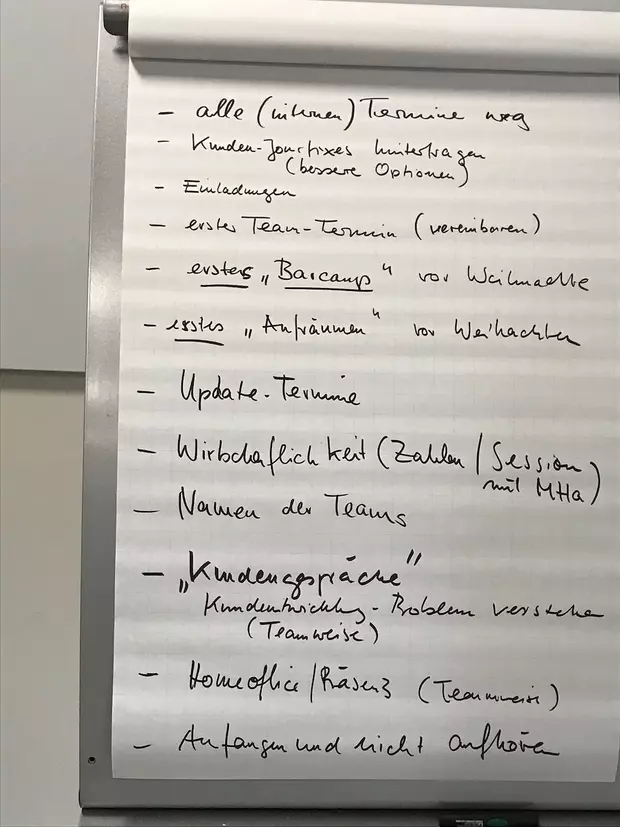 - alle (internen) Termine weg
- Kunden-Jourfixes hinterfragen
(bessere Optionen)
- Einladungen
- erster Team-Termin (vereinbaren)
- erstes „Barcamp“ vor Weihnachten
- erstes „Aufräumen“ vor Weihnachten
- Update-Termine
- Wirtschaftlichkeit (Zahlen / Session
mit MHa)
- Namen der Teams
- „Kundengespräche“
Kundentwicklung - Problem verstehen
(Teamweise)
- Homeoffice / Präsenz (Teamweise)
- Anfangen und nicht aufhören